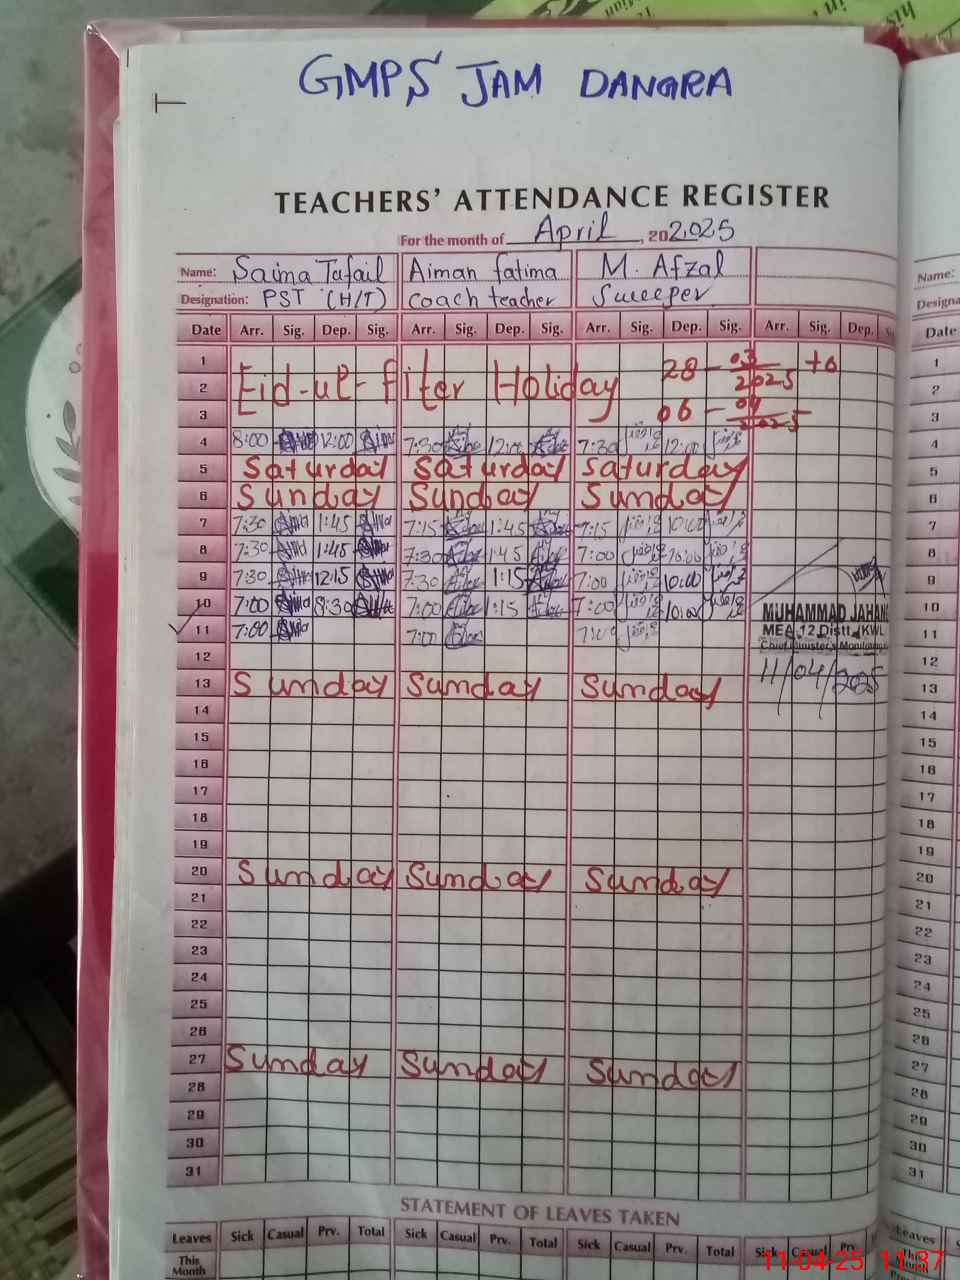 GMPS JAM DANGRA
TEACHERS' ATTENDANCE REGISTER
For the month of April, 202025
Name: Saima Tufail Aiman fatima M. Afzal
Designation: PST (H/T) coach teacher Sweeper
Date Arr. Sig. Dep. Sig. Arr. Sig. Dep. Sig. Arr. Sig. Dep. Sig. Arr. Sig. Dep.
1 Eid-ul-fiter Holiday 28-03-2025 to
2
3 06-04-2025
4 8:00 12:00 7:30 12:00 7:30 12:00
5 Saturday Saturday Saturday
6 Sunday Sunday Sunday
7 7:30 1:45 7:15 1:45 7:15 10:00
8 7:30 1:45 7:30 1:45 7:00 10:00
9 7:30 12:15 7:30 1:15 7:00 10:00
10 7:00 8:30 7:00 1:15 7:00 10:00
11 7:00 7:00 7:00
MUHAMMAD JAHANG
MEA 12 Distt. KWL
Chief Minister's Monitoring
11/04/2025
12
13 Sunday Sunday Sunday
14
15
16
17
18
19
20 Sunday Sunday Sunday
21
22
23
24
25
26
27 Sunday Sunday Sunday
28
29
30
31
STATEMENT OF LEAVES TAKEN
Leaves Sick Casual Prv. Total Sick Casual Prv. Total Sick Casual Prv. Total Sick Casual Prv.
This Month
Name:
Designa
Date
1
2
3
4
5
6
7
8
9
10
11
12
13
14
15
16
17
18
19
20
21
22
23
24
25
26
27
28
29
30
31
Leaves
11-04-25 11:37